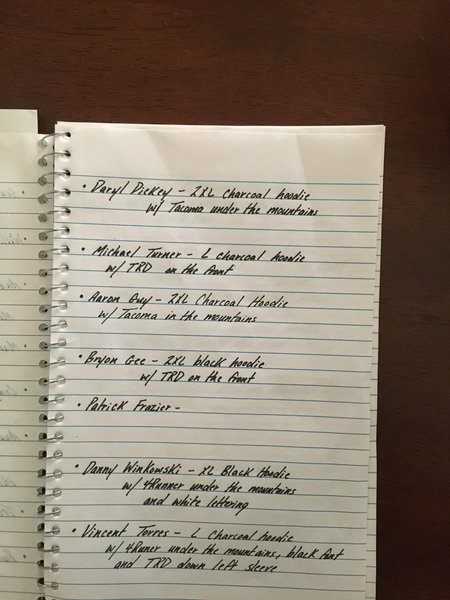 • Daryl Dickey - 2XL charcoal hoodie
w/ Tacoma under the mountains
• Michael Turner - L charcoal hoodie
w/ TRD on the front
• Aaron Guy - 2XL Charcoal Hoodie
w/ Tacoma in the mountains
• Bryon Gee - 2XL black hoodie
w/ TRD on the front
• Patrick Frazier -
• Danny Winkowski - XL Black Hoodie
w/ 4Runner under the mountains
and white lettering
• Vincent Torres - L charcoal hoodie
w/ 4Runer under the mountains, black font
and TRD down left sleeve